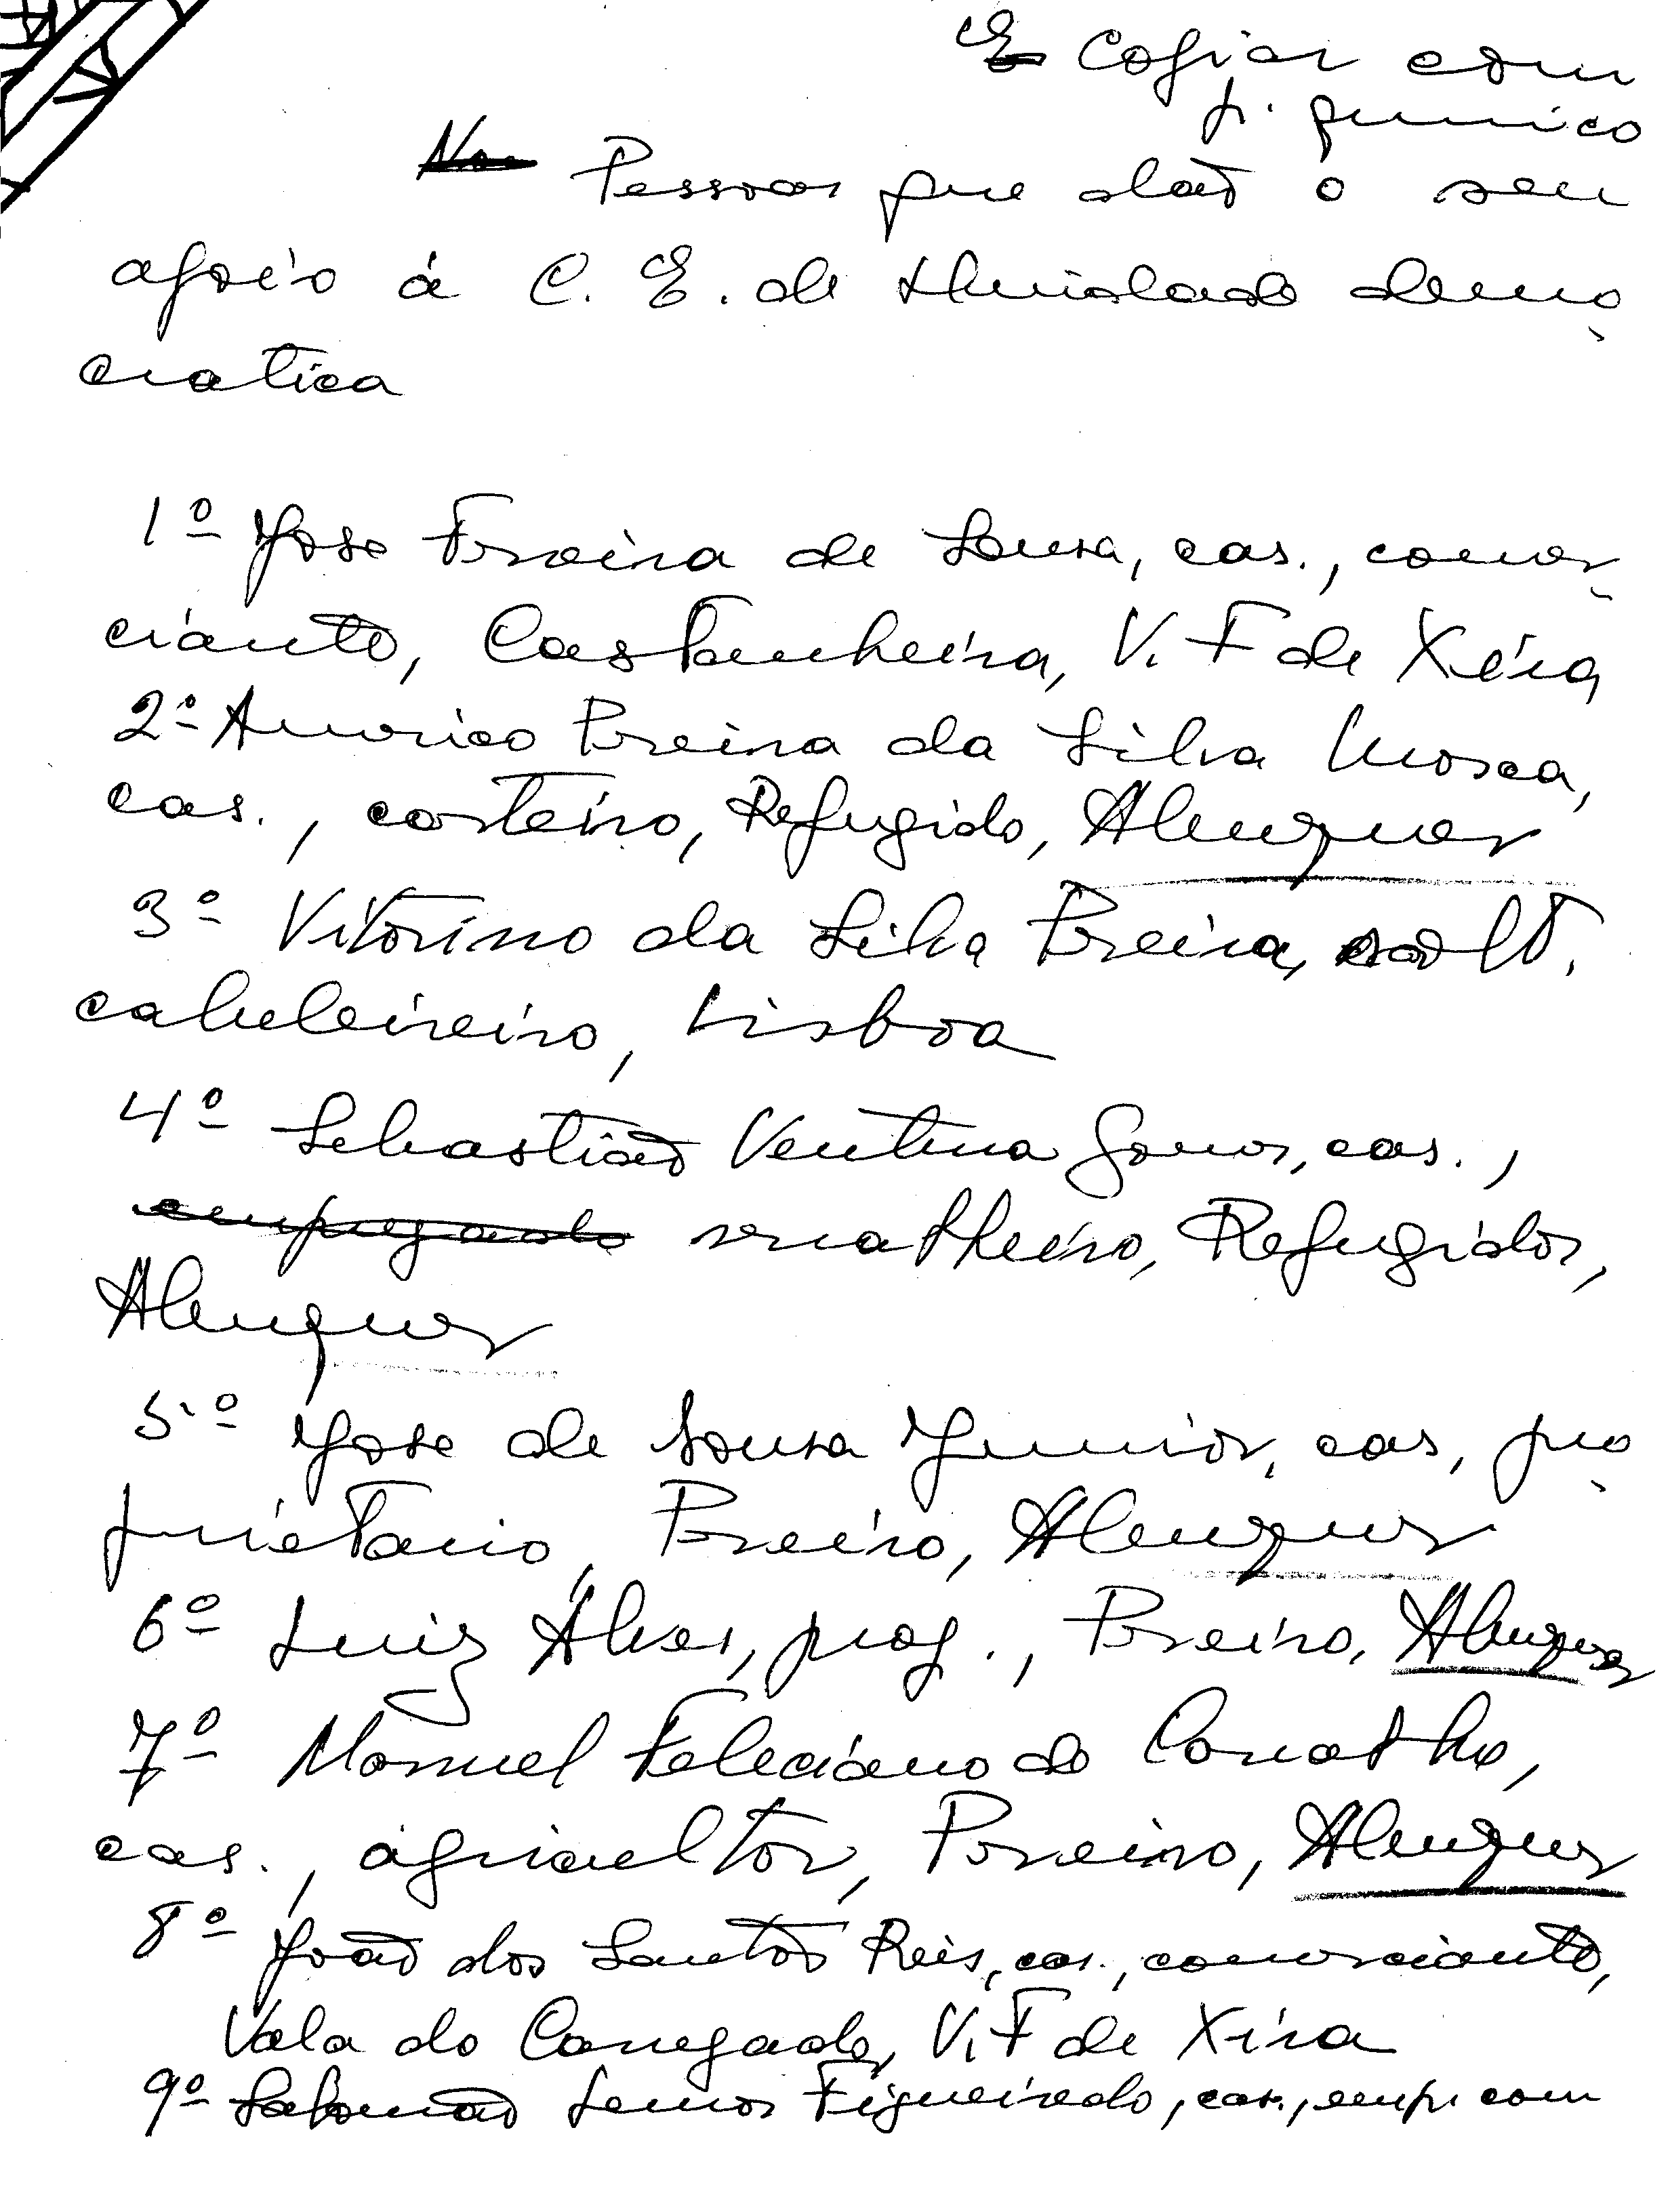 Copiar com
p. quimico
Pessoas que dão o seu
apoio á C. E. de Unidade demo-
cratica
1º José Ferreira de Sousa, cas., comer-
ciante, Castanheira, V. F de Xira
2º Americo Pereira da Silva Mosca,
cas., corteiro, Refugido, Alenquer
3º Vitorino da Silva Pereira, solt.
cabeleireiro, Lisboa
4º Sebastião Ventura Gomes, cas.,
empregado serralheiro, Refugidos,
Alenquer
5º José de Sousa Junior, cas, pro-
prietario, Pereiro, Alenquer
6º Luiz Alves, prop., Pereiro, Alenquer
7º Manuel Feleciano de Carvalho,
cas., agricultor, Pereiro, Alenquer
8º João dos Santos Reis, cas., comerciante,
Vala do Carregado, V. F de Xira
9º Salomão Lemos Figueiredo, cas., emp. com